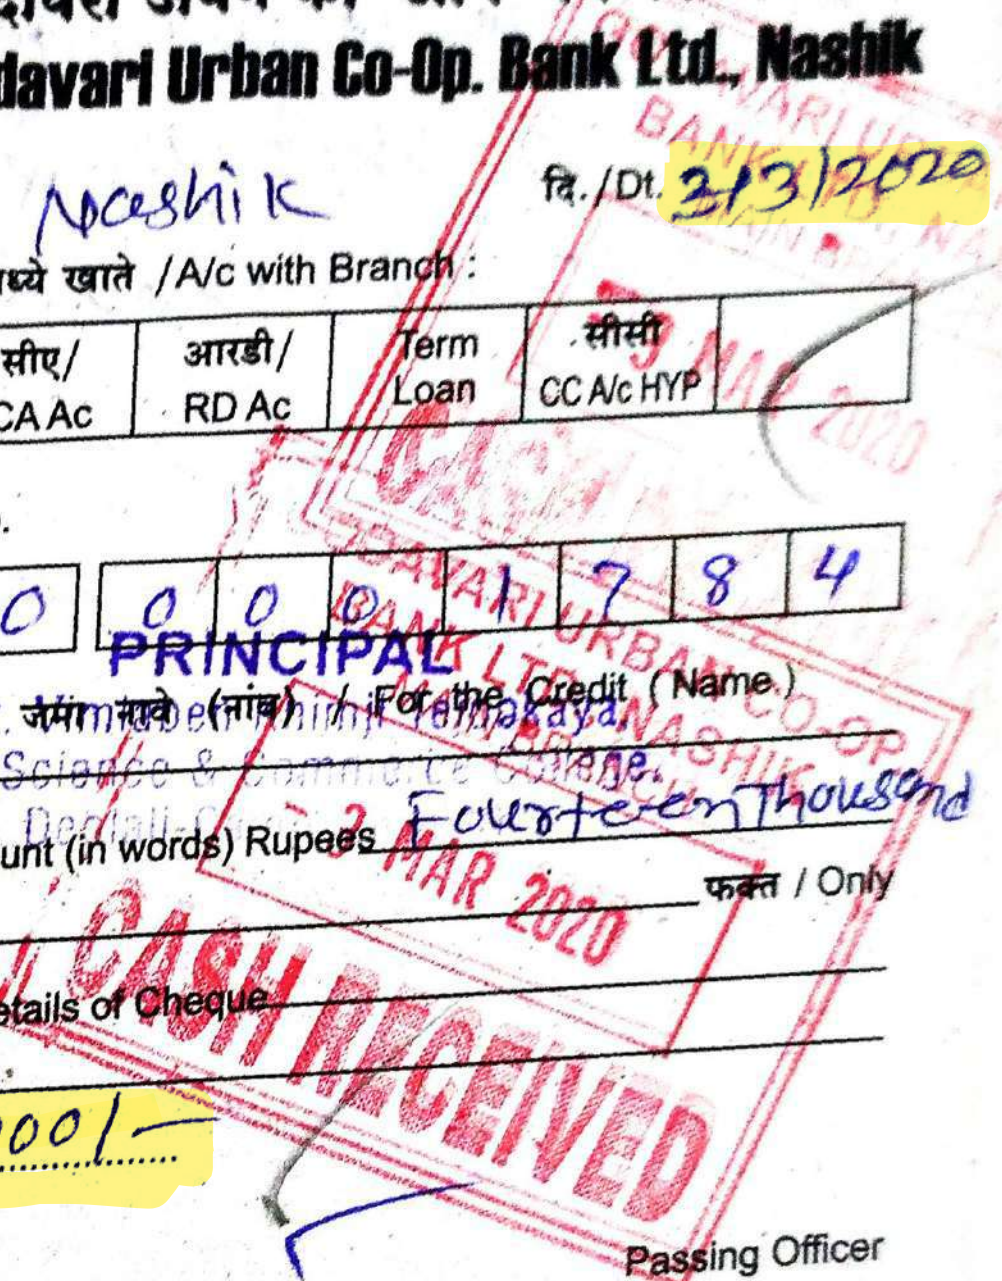 davari Urban Co-Op. Bank Ltd., Nashik
Nashik
दि./Dt. 3/3/2020
मध्ये खाते /A/c with Branch :
सीए/ CA Ac
आरडी/ RD Ac
Term Loan
सीसी CC A/c HYP
0 0 0 0 1 7 8 4
PRINCIPAL
जमा नावे (नांव) / For the Credit (Name)
Science & Commerce College,
unt (in words) Rupees Fourteen Thousand
फक्त / Only
etails of Cheque
000/-
Passing Officer
BANK
MAR 2020
CASH
DAVARI URBAN CO-OP
BANK LTD. NASHIK
3 MAR 2020
CASH RECEIVED